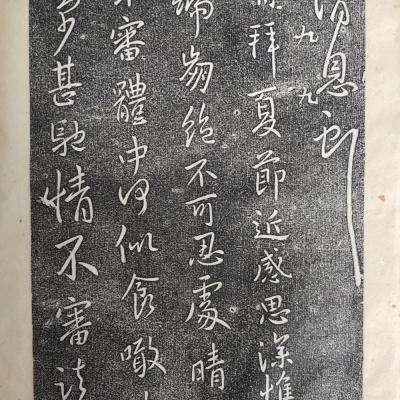 息耶
九九
拜夏節近感思深惟
絕不可忍處晴
審體中何似食噉
甚馳情不審